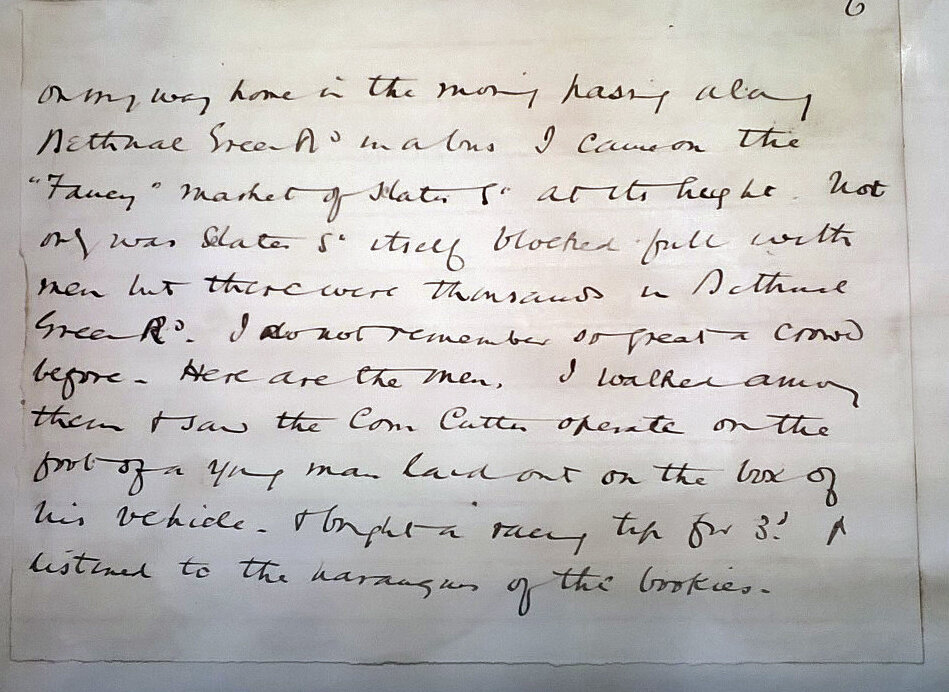 6
on my way home in the morning passing along
Bethnal Green Rd in a bus I came on the
"Fancy" market of Sclater St at its height. Not
only was Sclater St itself blocked full with
men but there were thousands in Bethnal
Green Rd. I do not remember so great a crowd
before - Here are the men. I walked among
them & saw the Corn Cutter operate on the
foot of a young man laid out on the box of
his vehicle - & bought a racing tip for 3d &
listened to the harangues of the bookies.